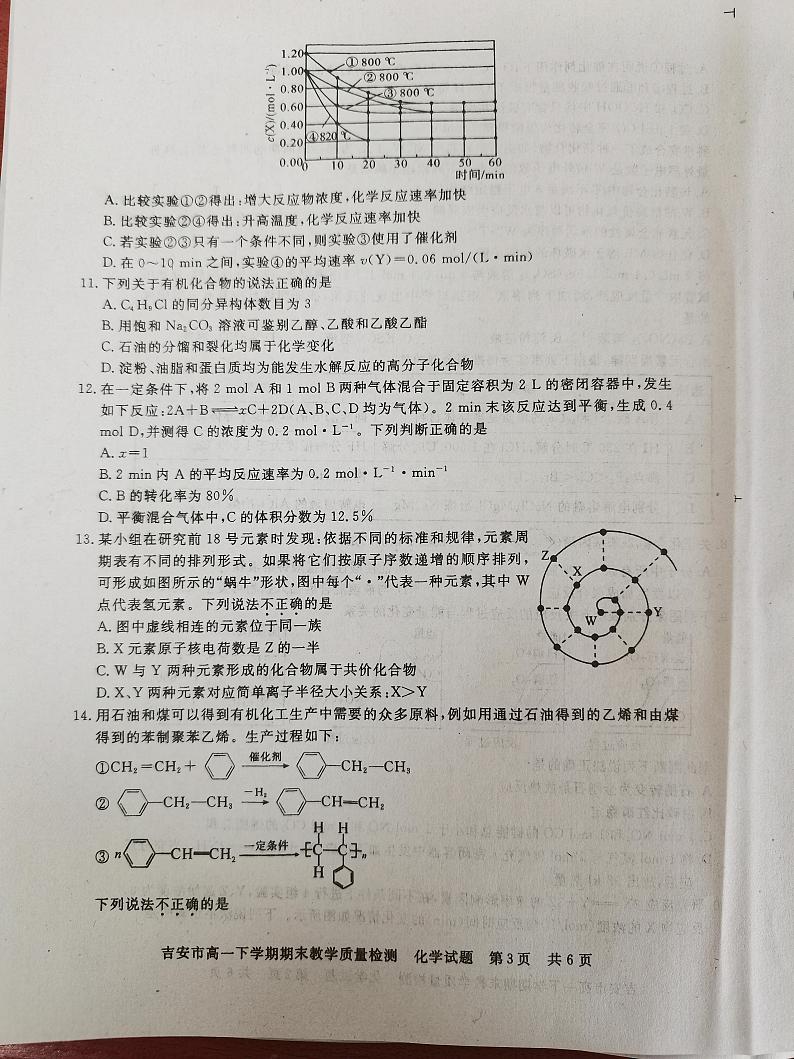 1.20
1.00
0.80
0.60
0.40
0.20
0.00
c(X)/(mol·L⁻¹)
①800 ℃
②800 ℃
③800 ℃
④820℃
0 10 20 30 40 50 60
时间/min
A. 比较实验①②得出:增大反应物浓度,化学反应速率加快
B. 比较实验②④得出:升高温度,化学反应速率加快
C. 若实验②③只有一个条件不同,则实验③使用了催化剂
D. 在 0～10 min 之间,实验④的平均速率 v(Y)=0.06 mol/(L·min)
11. 下列关于有机化合物的说法正确的是
A. C₄H₉Cl 的同分异构体数目为 3
B. 用饱和 Na₂CO₃ 溶液可鉴别乙醇、乙酸和乙酸乙酯
C. 石油的分馏和裂化均属于化学变化
D. 淀粉、油脂和蛋白质均为能发生水解反应的高分子化合物
12. 在一定条件下,将 2 mol A 和 1 mol B 两种气体混合于固定容积为 2 L 的密闭容器中,发生
如下反应:2A+B⇌xC+2D(A、B、C、D 均为气体)。2 min 末该反应达到平衡,生成 0.4
mol D,并测得 C 的浓度为 0.2 mol·L⁻¹。下列判断正确的是
A. x=1
B. 2 min 内 A 的平均反应速率为 0.2 mol·L⁻¹·min⁻¹
C. B 的转化率为 80%
D. 平衡混合气体中,C 的体积分数为 12.5%
13. 某小组在研究前 18 号元素时发现:依据不同的标准和规律,元素周
期表有不同的排列形式。如果将它们按原子序数递增的顺序排列,
可形成如图所示的“蜗牛”形状,图中每个“·”代表一种元素,其中 W
点代表氢元素。下列说法不正确的是
A. 图中虚线相连的元素位于同一族
B. X 元素原子核电荷数是 Z 的一半
C. W 与 Y 两种元素形成的化合物属于共价化合物
D. X、Y 两种元素对应简单离子半径大小关系:X>Y
Z
X
W
Y
14. 用石油和煤可以得到有机化工生产中需要的众多原料,例如用通过石油得到的乙烯和由煤
得到的苯制聚苯乙烯。生产过程如下:
①CH₂=CH₂+ 催化剂 —CH₂—CH₃
② —CH₂—CH₃ −H₂ —CH=CH₂
③ n —CH=CH₂ 一定条件 H H C—C H n
下列说法不正确的是
吉安市高一下学期期末教学质量检测 化学试题 第3页 共6页